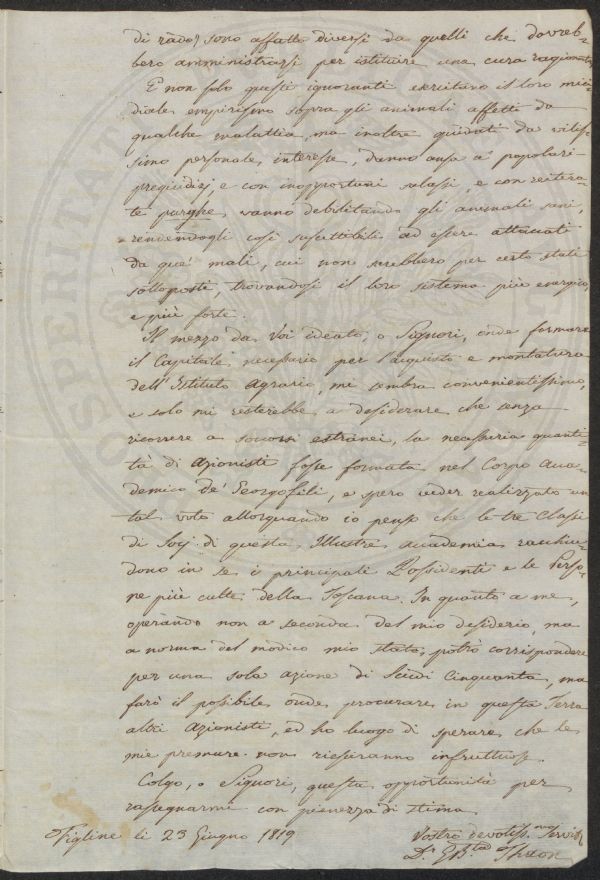 di rado) sono affatto diversi da quelli che dovreb-
bero amministrarsi per istituire una cura ragionata
E non solo questi ignoranti exercitano il loro mici-
diale empirismo sopra gli animali affetti da
qualche malattia, ma inoltre guidati da vilis-
simo personale interesse, danno ansa a' popolari
pregiudizj e con inopportuni salassi, e con reitera-
te purghe, vanno debilitando gli animali sani,
rendendogli così suscettibili ad essere attaccati
da que' mali, cui non sarebbero per certo stati
sottoposti, trovandosi il loro sistema più energico,
e più forte.
Il mezzo da Voi ideato, o Signori, onde formare
il Capitale necessario per l'acquisto e montatura
dell'Istituto Agrario, mi sembra convenientissimo,
e solo mi resterebbe a desiderare che senza
ricorrere a soccorsi estranei, la necessaria quanti-
tà di Azionisti fosse formata nel Corpo Acca-
demico de' Georgofili, e spero veder realizzato un
tal voto allorquando io penso che le tre Classi
di Socj di questa Illustre Accademia racchiu-
dono in se i principali Possidenti e le Perso-
ne più culte della Toscana. In quanto a me,
operando non a seconda del mio desiderio, ma
a norma del modico mio stato, potrò corrispondere
per una sola azione di Scudi Cinquanta, ma
farò il possibile onde procurare in questa Terra
altri Azionisti, ed ho luogo di sperare che le
mie premure non riesciranno infruttuose.
Colgo, o Signori, questa opportunità per
rassegnarmi con pienezza di stima
Figline li 23 Giugno 1819
Vostro devotiss.
D.r G. B.ta
PROSPERITATI